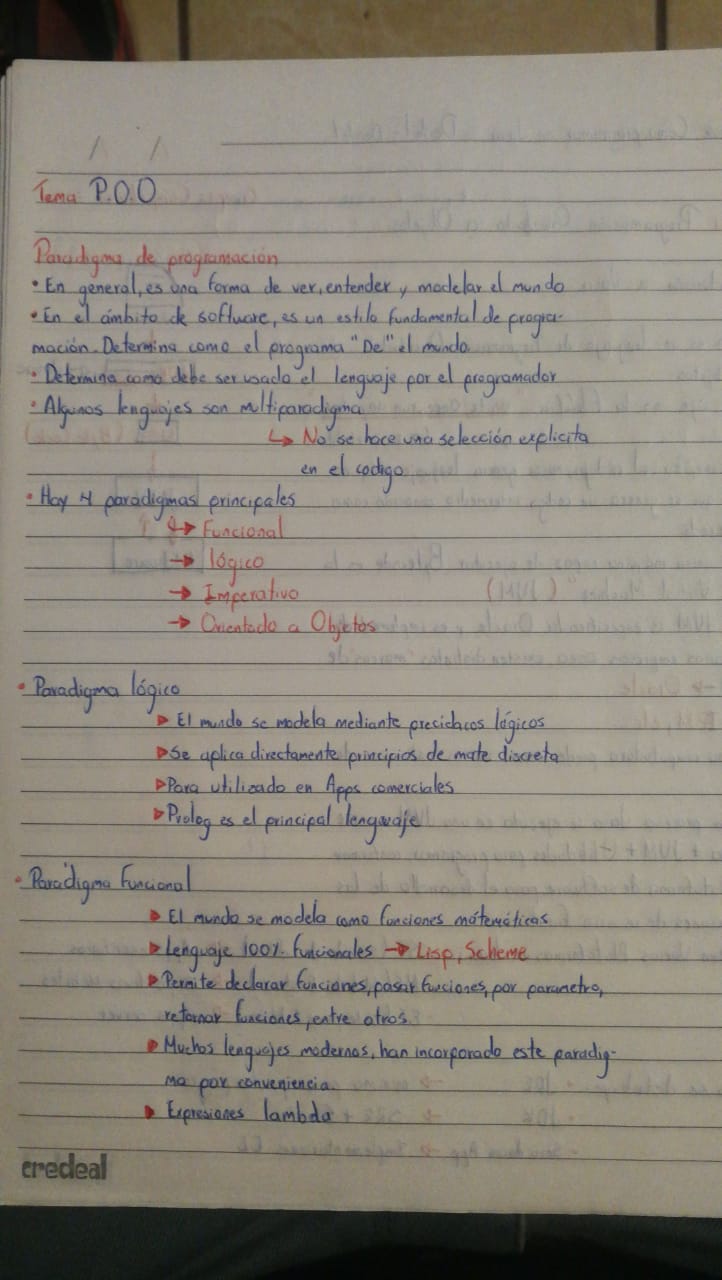 Tema P.O.O
Paradigma de programación
• En general, es una forma de ver, entender y modelar el mundo
• En el ámbito de software, es un estilo fundamental de progra-
mación. Determina como el programa "De" el mundo
• Determina como debe ser usado el lenguaje por el programador
• Algunos lenguajes son multiparadigma
↳ No se hace una selección explicita
en el codigo
• Hay 4 paradigmas principales
↳ Funcional
→ lógico
→ Imperativo
→ Orientado a Objetos
• Paradigma lógico
▶ El mundo se modela mediante lógicos
▶ Se aplica directamente principios de mate discreta
▶ Para utilizado en Apps comerciales
▶ Prolog es el principal lenguaje
• Paradigma Funcional
▶ El mundo se modela como funciones mátemáticas
▶ Lenguaje 100% funcionales → Lisp, Scheme
▶ Permite declarar funciones, pasar funciones, por parametro,
retornar funciones, entre otros.
▶ Muchos lenguajes modernos, han incorporado este paradig-
ma por conveniencia.
▶ Expresiones lambda
credeal